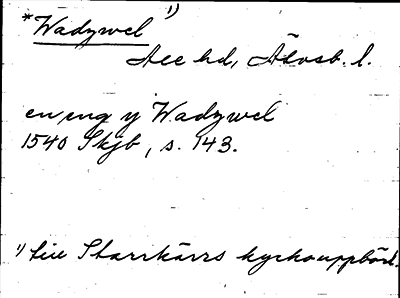 *Wadzwel ¹)
Ale hd, Älvsb. l.
en eng y Wadzwel
1540 Skjb, s. 143.
¹) till Starrkärrs kyrkouppbörd.